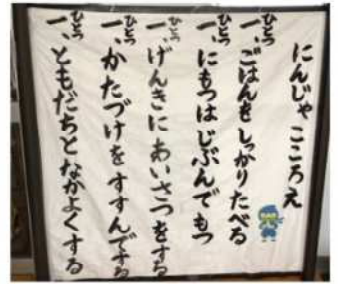 にんじゃ こころえ
一、ごはんをしっかりたべる
ひとつ
一、にもつはじぶんでもつ
ひとつ
一、げんきにあいさつをする
ひとつ
一、かたづけをすすんでする
ひとつ
一、ともだちとなかよくする
ひとつ